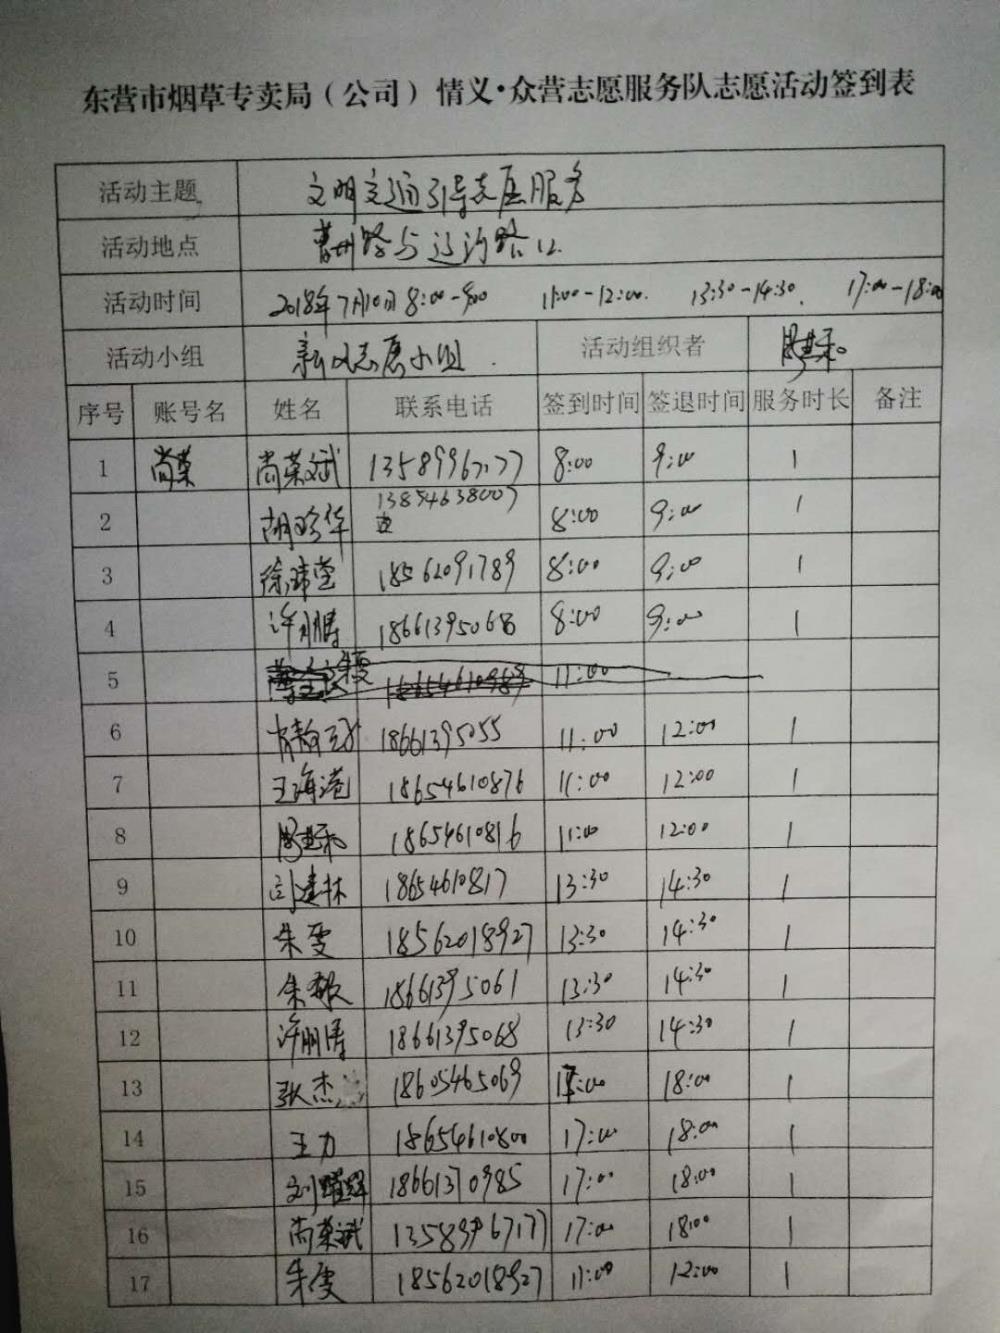 东营市烟草专卖局（公司）情义·众营志愿服务队志愿活动签到表
活动主题 文明交通引导志愿服务
活动地点 曹州路与辽河路口
活动时间 2018年7月10日 8:00-9:00 11:00-12:00. 13:30-14:30. 17:00-18:00
活动小组 志愿小组 活动组织者
序号 账号名 姓名 联系电话 签到时间 签退时间 服务时长 备注
1 尚荣 尚荣斌 13589967177 8:00 9:00 1
2 胡珍华 13854638007 8:00 9:00 1
3 徐 18562091789 8:00 9:00 1
4 许明涛 18661395068 8:00 9:00 1
5 11:00
6 18661395055 11:00 12:00 1
7 王海港 18654610876 11:00 12:00 1
8 18654610816 11:00 12:00 1
9 刘建林 18654610817 13:30 14:30 1
10 朱雯 18562018927 13:30 14:30 1
11 朱敏 18661395061 13:30 14:30 1
12 许明涛 18661395068 13:30 14:30 1
13 张杰 18605465069 17:00 18:00 1
14 王力 18654610800 17:00 18:00 1
15 刘耀辉 18661370985 17:00 18:00 1
16 尚荣斌 13589967177 17:00 18:00 1
17 朱雯 18562018927 11:00 12:00 1